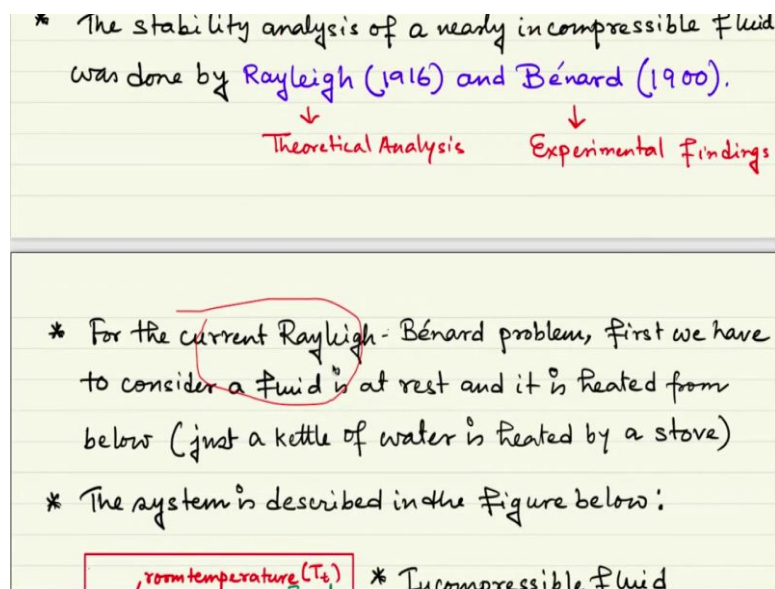 * The stability analysis of a nearly incompressible fluid
was done by Rayleigh (1916) and Bénard (1900).
↓ ↓
Theoretical Analysis Experimental findings
* For the current Rayleigh - Bénard problem, first we have
to consider a fluid is at rest and it is heated from
below (just a kettle of water is heated by a stove)
* The system is described in the figure below:
room temperature (Tt)
* Incompressible fluid